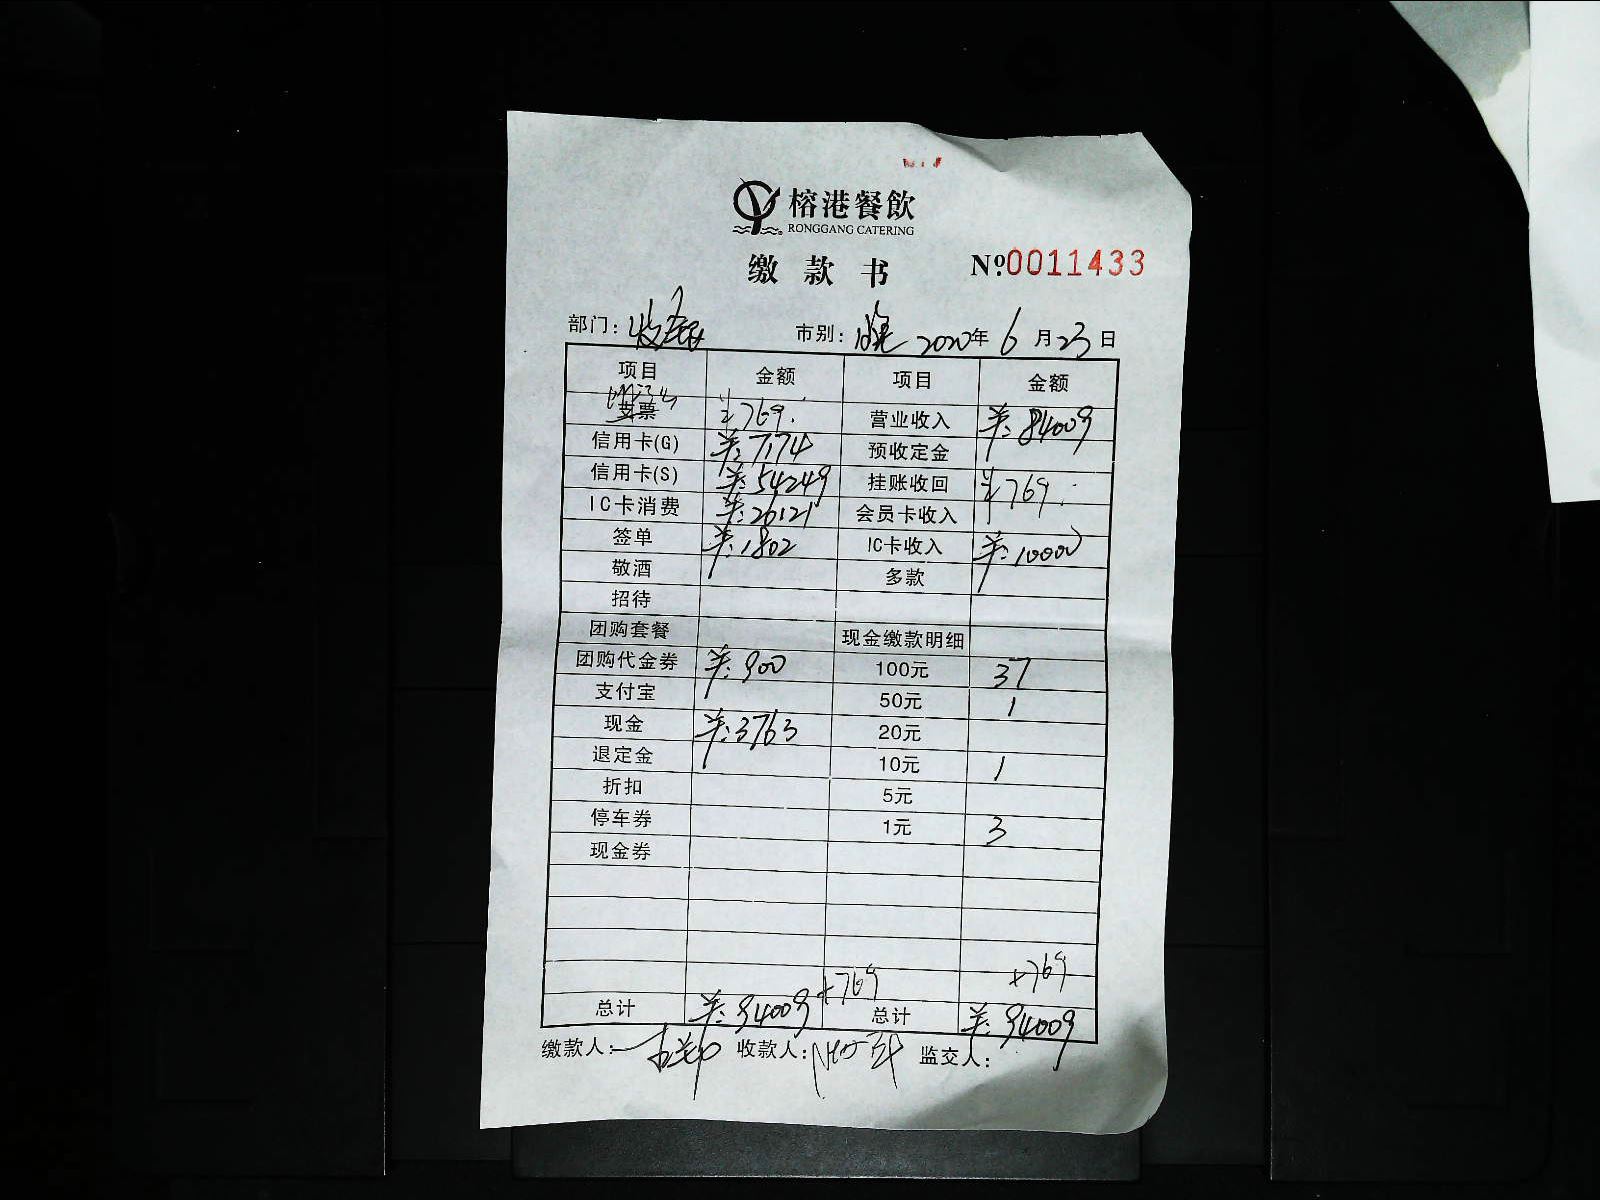 榕港餐飲
RONGGANG CATERING
缴款书 №0011433
部门: 市别: 晚 2020年 6月23日
项目 金额 项目 金额
支票 ¥769. 营业收入 ¥:84009
信用卡(G) ¥:7174 预收定金
信用卡(S) ¥:54249 挂账收回 ¥769.
IC卡消费 ¥:26121 会员卡收入
签单 ¥:1802 IC卡收入 ¥:10000
敬酒 多款
招待
团购套餐 现金缴款明细
团购代金券 ¥:900 100元 37
支付宝 50元 1
现金 ¥:3763 20元
退定金 10元 1
折扣 5元
停车券 1元 3
现金券
+769 +769
总计 ¥:94009 总计 ¥:94009
缴款人: 收款人: 监交人: